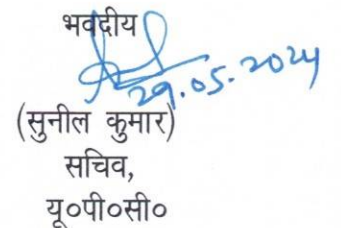 भवदीय
29.05.2024
(सुनील कुमार)
सचिव,
यू०पी०सी०